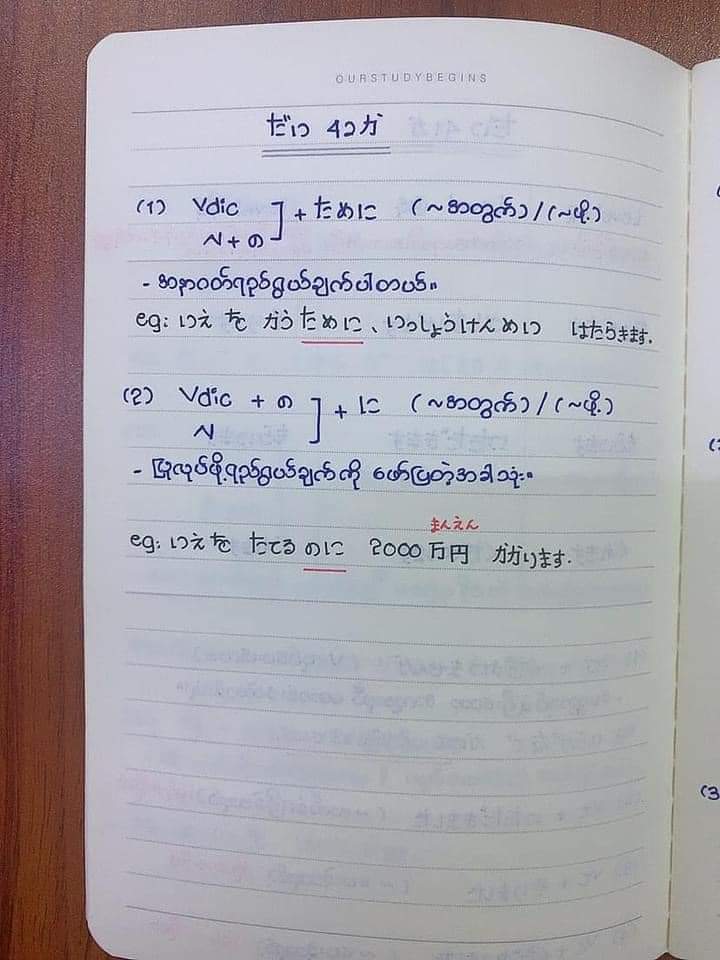 OURSTUDYBEGINS
だい 42 か
(1) Vdic
N + の ] + ために (~အတွက်) / (~ဖို့)
- အနာဂတ်ရည်ရွယ်ချက်ပါတယ်။
eg: いえ を かう ために、いっしょうけんめい はたらきます.
(2) Vdic + の
N ] + に (~အတွက်) / (~ဖို့)
- ပြုလုပ်ဖို့ရည်ရွယ်ချက်ကို ဖော်ပြတဲ့အခါသုံး။
まんえん
eg: いえを たてる のに 2000 万円 かかります.
(3